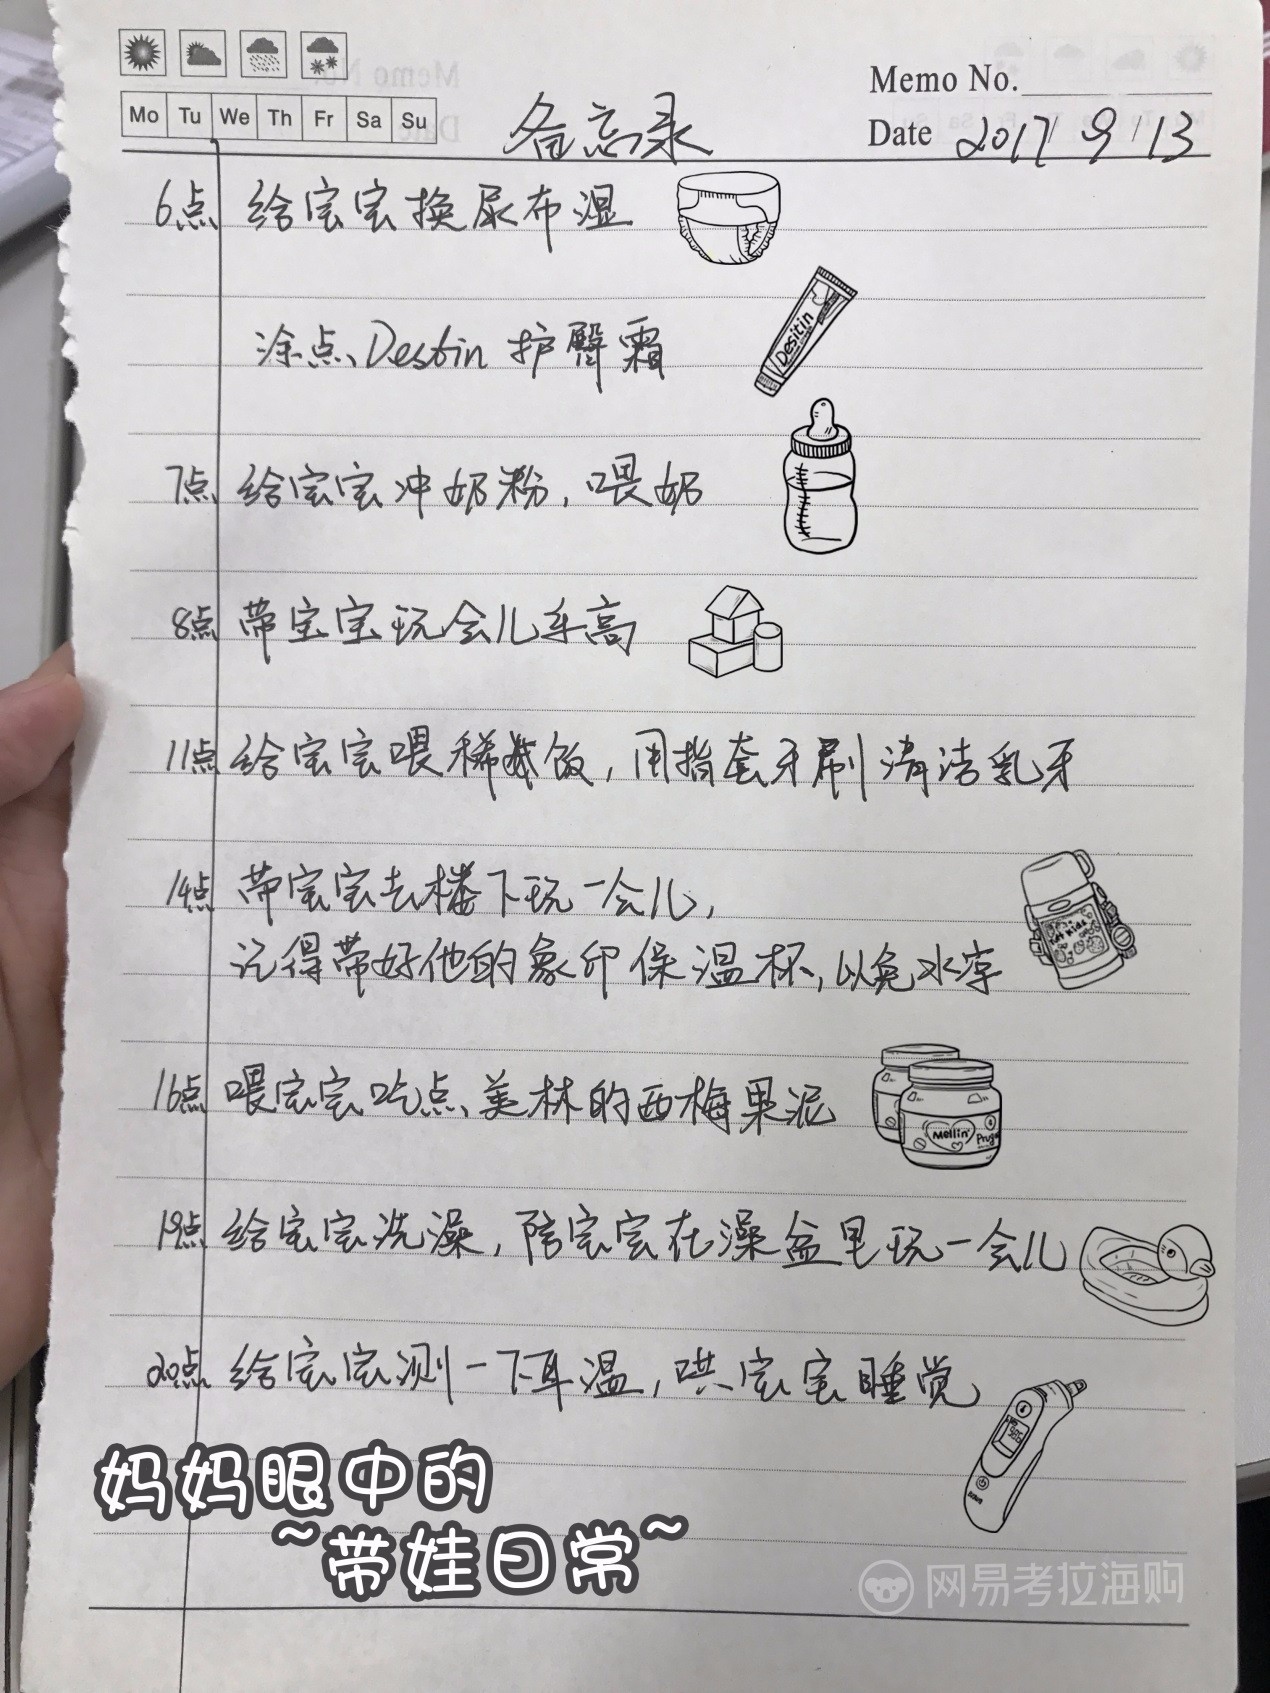 Memo No.
Mo Tu We Th Fr Sa Su
备忘录
Date 2017 9 13
6点 给宝宝换尿布湿
涂点Destin护臀霜
Desitin
7点 给宝宝冲奶粉,喂奶
8点 带宝宝玩会儿乐高
11点 给宝宝喂稀饭,用指套牙刷清洁乳牙
14点 带宝宝去楼下玩一会儿,
记得带好他的象印保温杯,以免水凉
16点 喂宝宝吃点美林的西梅果泥
Mellin
19点 给宝宝洗澡,陪宝宝在澡盆里玩一会儿
20点 给宝宝测一下耳温,哄宝宝睡觉
妈妈眼中的
~带娃日常~
网易考拉海购